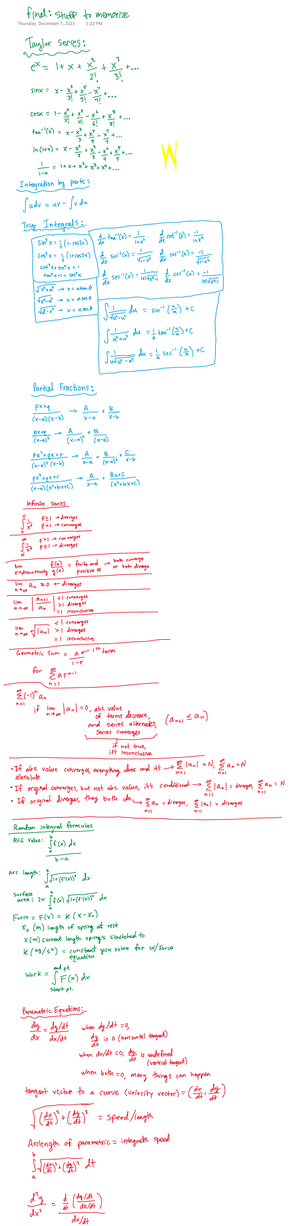 final: stuff to memorize
Thursday, December 7, 2023 5:22 PM
Taylor Series:
e^x = 1 + x + x²/2! + x³/3! + ...
sinx = x - x³/3! + x⁵/5! - x⁷/7! + ...
cosx = 1 - x²/2! + x⁴/4! - x⁶/6! + x⁸/8! ...
tan⁻¹(x) = x - x³/3 + x⁵/5 - x⁷/7 + ...
ln(1+x) = x - x²/2 + x³/3 - x⁴/4 + x⁵/5 + ...
1/(1-x) = 1 + x + x² + x³ + x⁴ + ...
W
Integration by parts:
∫u dv = uv - ∫v du
Trig Integrals:
sin²x = ½(1-cos2x)
cos²x = ½(1+cos2x)
cos²x + sin²x = 1
tan²x + 1 = sec²x
d/dx tan⁻¹(x) = 1/(1+x²) d/dx cot⁻¹(x) = -1/(1+x²)
d/dx sin⁻¹(x) = 1/√(1-x²) d/dx cos⁻¹(x) = -1/√(1-x²)
d/dx sec⁻¹(x) = 1/(|x|√(x²-1)) d/dx csc⁻¹(x) = -1/(|x|√(x²-1))
∫ 1/√(a²-u²) du = sin⁻¹(u/a) + C
∫ 1/(a²+u²) du = 1/a tan⁻¹(u/a) + C
∫ 1/(u√(u²-a²)) du = 1/a sec⁻¹(u/a) + C
Partial Fractions:
(px+q)/((x-a)(x-b)) → A/(x-a) + B/(x-b)
(px+q)/(x-a)² → A/(x-a)² + B/(x-a)
(px²+qx+r)/((x-a)²(x-b)) → A/(x-a) + B/(x-a)² + C/(x-b)
(px²+qx+r)/((x-a)(x²+bx+c)) → A/(x-a) + (Bx+C)/(x²+bx+c)
Infinite Series
p≥1 → diverges
p<1 → converges
p>1 → converges
p≤1 → diverges
f(x)/g(x) = finite and positive → both converge or both diverge
lim n→∞ aₙ ≠ 0 → diverges
lim n→∞ |aₙ₊₁/aₙ| <1 converges
>1 diverges
=1 inconclusive
lim n→∞ ⁿ√|aₙ| <1 converges
>1 diverges
=1 inconclusive
Geometric Sum = a/(1-r) ← 1st term
for ∑ n=1 ∞ arⁿ⁻¹
∑ n=1 ∞ (-1)ⁿ aₙ
if lim n→∞ |aₙ| = 0, abs. value
of terms decrease, (aₙ₊₁ ≤ aₙ)
and series alternates,
series converges
if not true,
it's inconclusive
• If abs value converges, everything does and its absolute
• If original converges, but not abs. value, it's conditional
• If original diverges, they both do
Random integral formulas
AVG Value: ∫ₐᵇ f(x) dx / (b-a)
arc length: ∫ₐᵇ √(1+(f'(x))²) dx
surface area: 2π ∫ₐᵇ f(x) √(1+(f'(x))²) dx
Force = F(x) = k(x-x₀)
x₀ (m) length of spring at rest
x (m) current length spring's stretched to
k (kg/s²) = constant you solve for w/ Force equation
Work = ∫ F(x) dx
end pt.
start pt.
Parametric Equations:
dy/dx = (dy/dt)/(dx/dt)
when dy/dt = 0,
dy/dx is 0 (horizontal tangent)
when dx/dt = 0, dy/dx is undefined
(vertical tangent)
when both = 0, many things can happen
tangent vector to a curve (velocity vector) = (dx/dt, dy/dt)
√((dx/dt)² + (dy/dt)²) = speed/length
Arclength of parametric = integrate speed
∫ₐᵇ √((dx/dt)² + (dy/dt)²) dt
d²y/dx² = d/dt((dy/dt)/(dx/dt)) / (dx/dt)